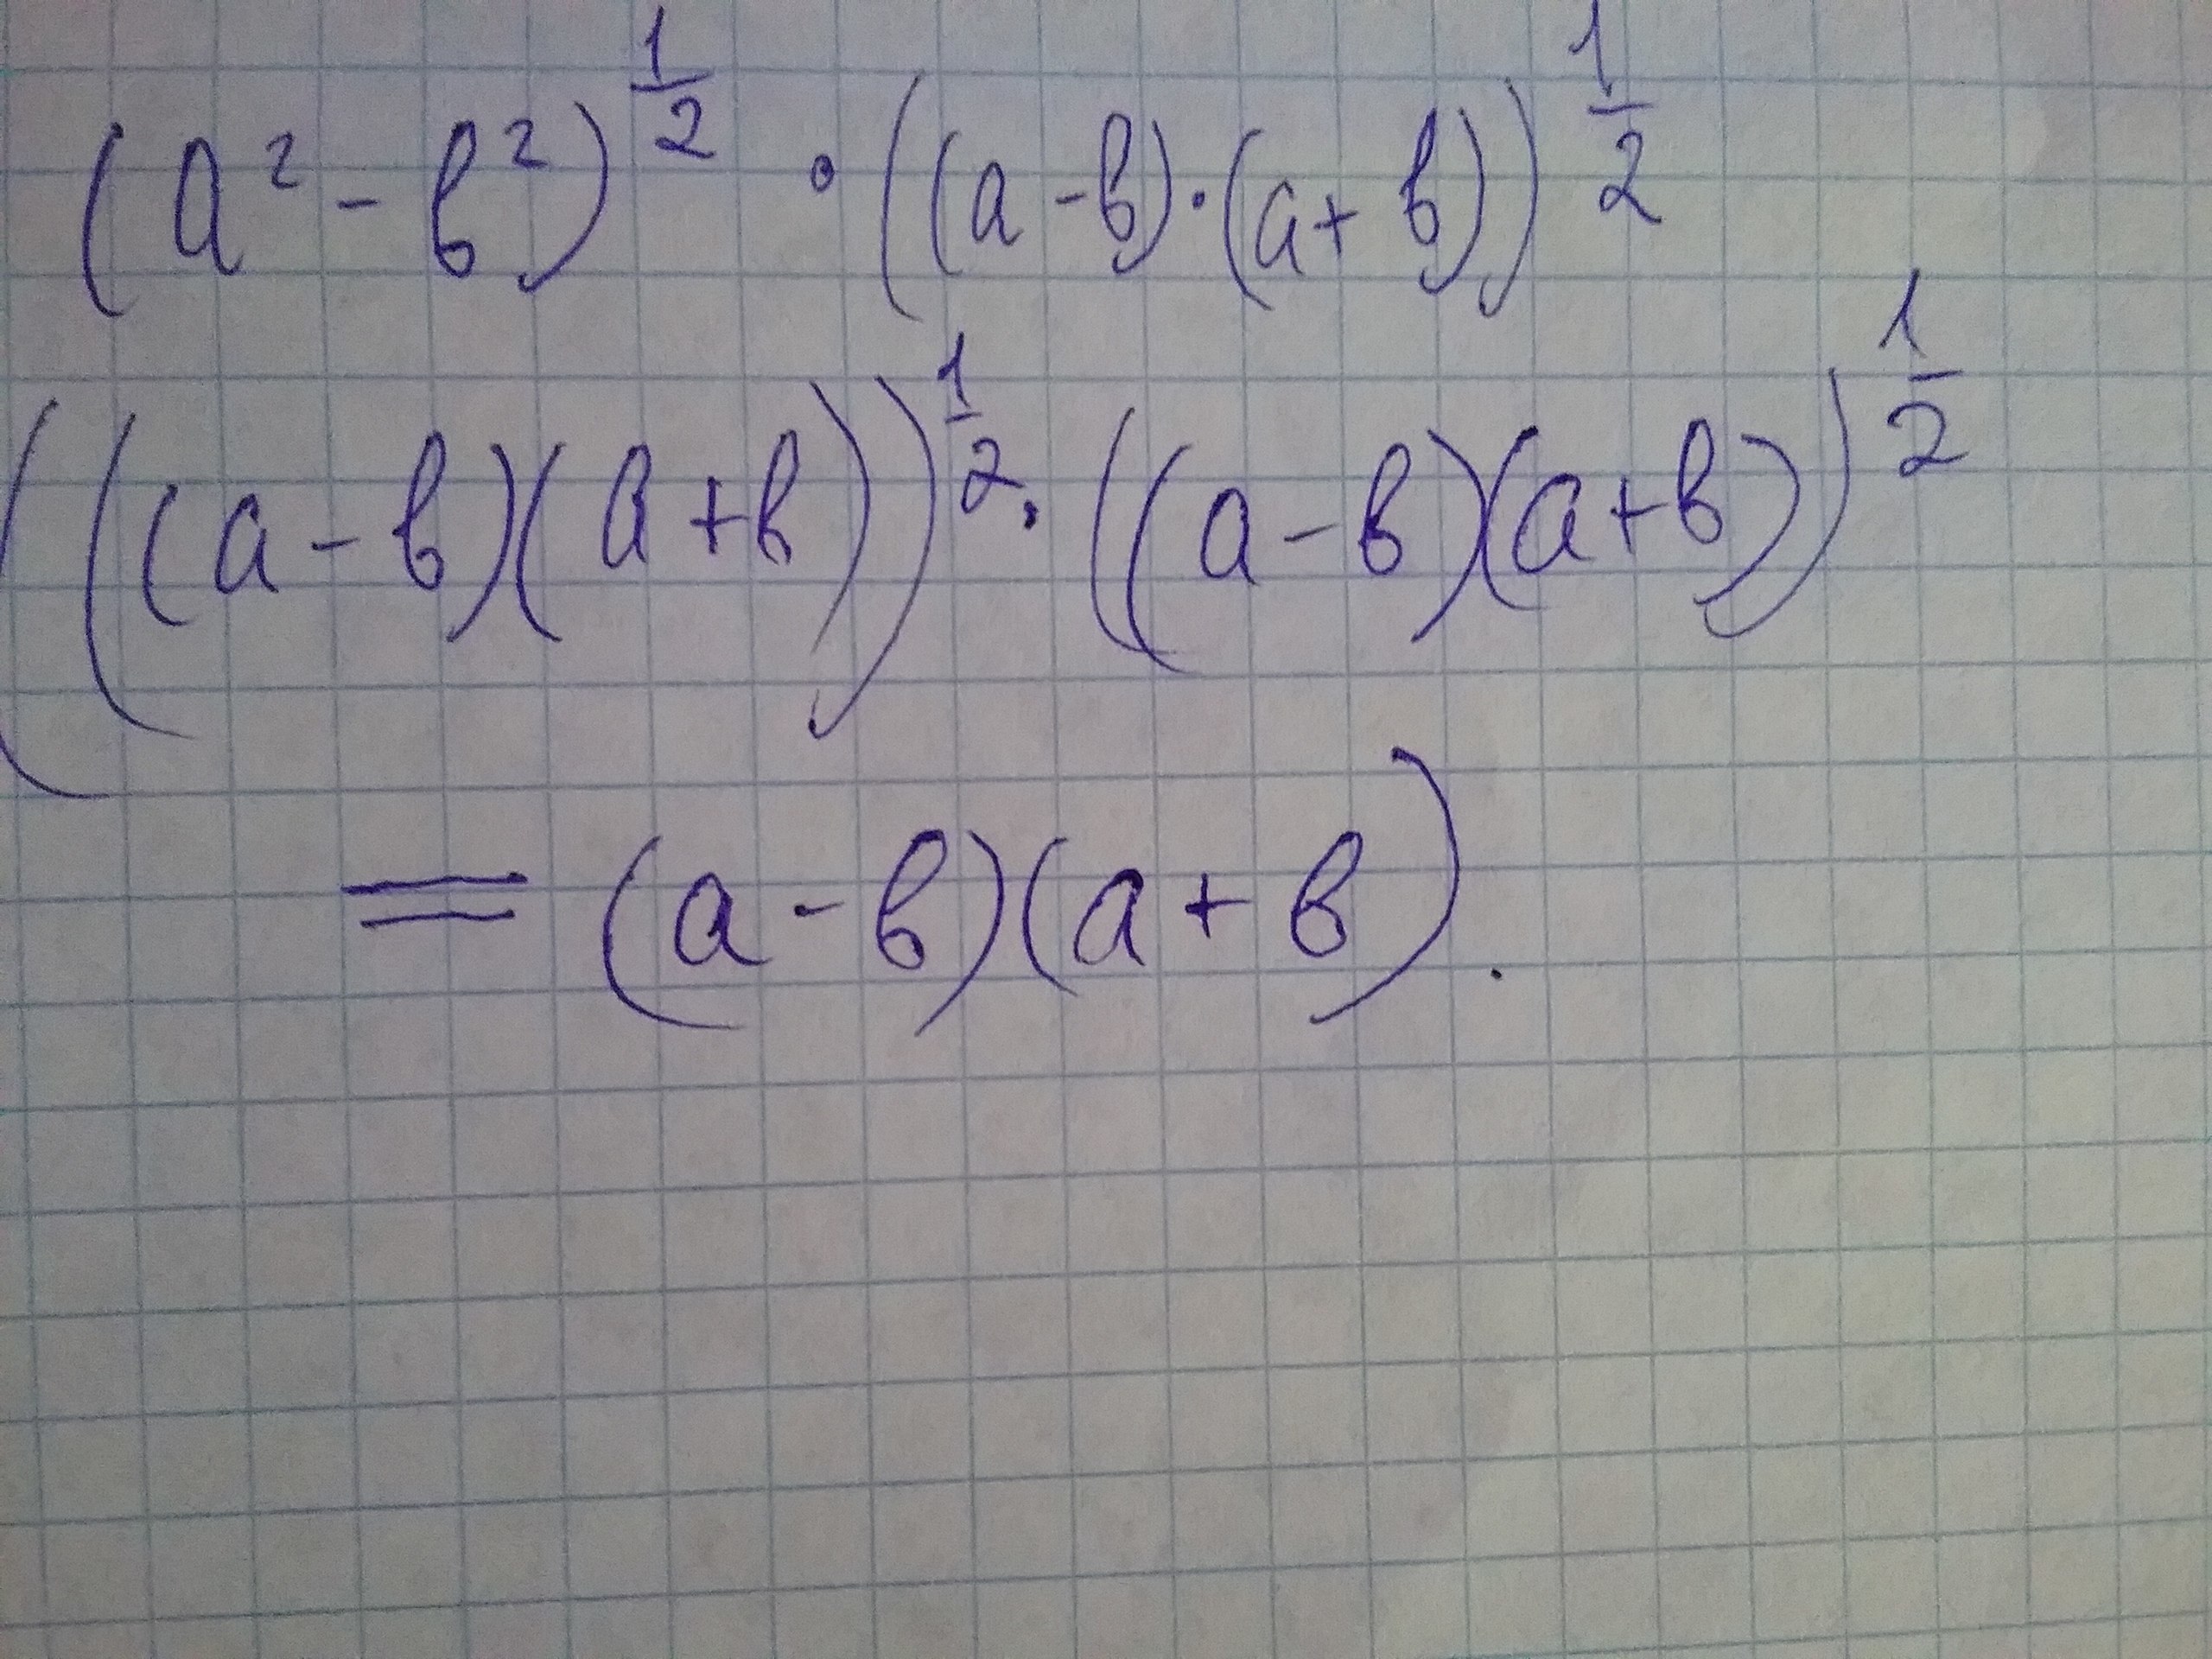 (a² - b²)^(1/2) · ((a - b) · (a + b))^(1/2)
(((a - b)(a + b))^(1/2) · ((a - b)(a + b))^(1/2)
= (a - b)(a + b).